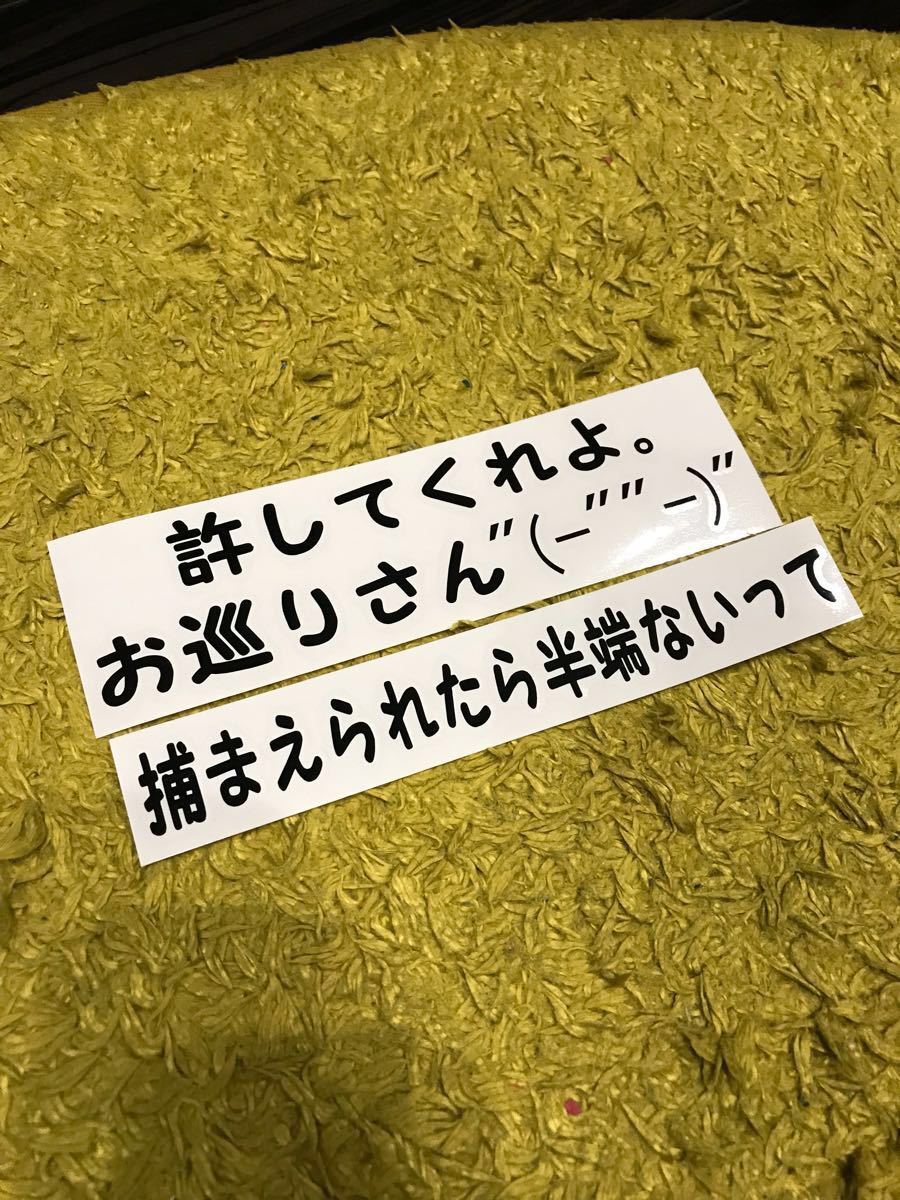 許してくれよ。
お巡りさん"(-""  -)"
捕まえられたら半端ないって